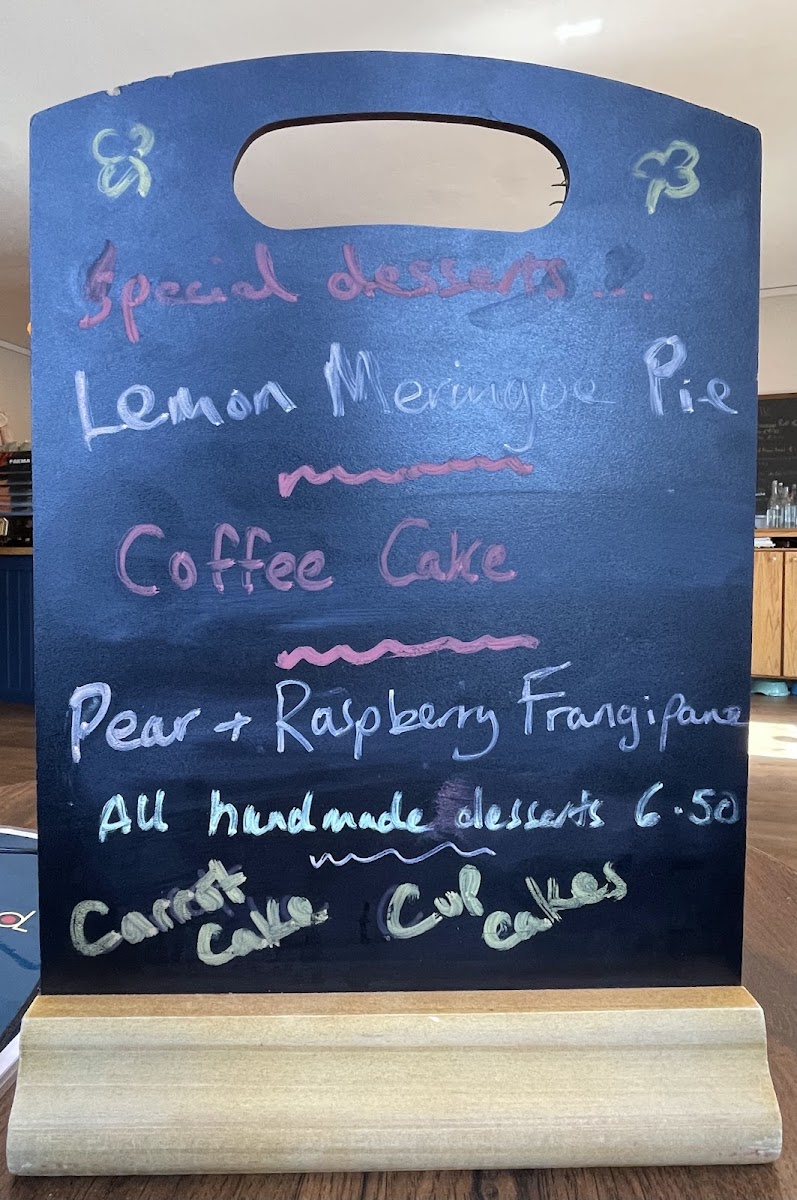 Special desserts...
Lemon Meringue Pie
Coffee Cake
Pear + Raspberry Frangipane
All handmade desserts 6.50
Carrot Cake
Cup cakes
FAEMA